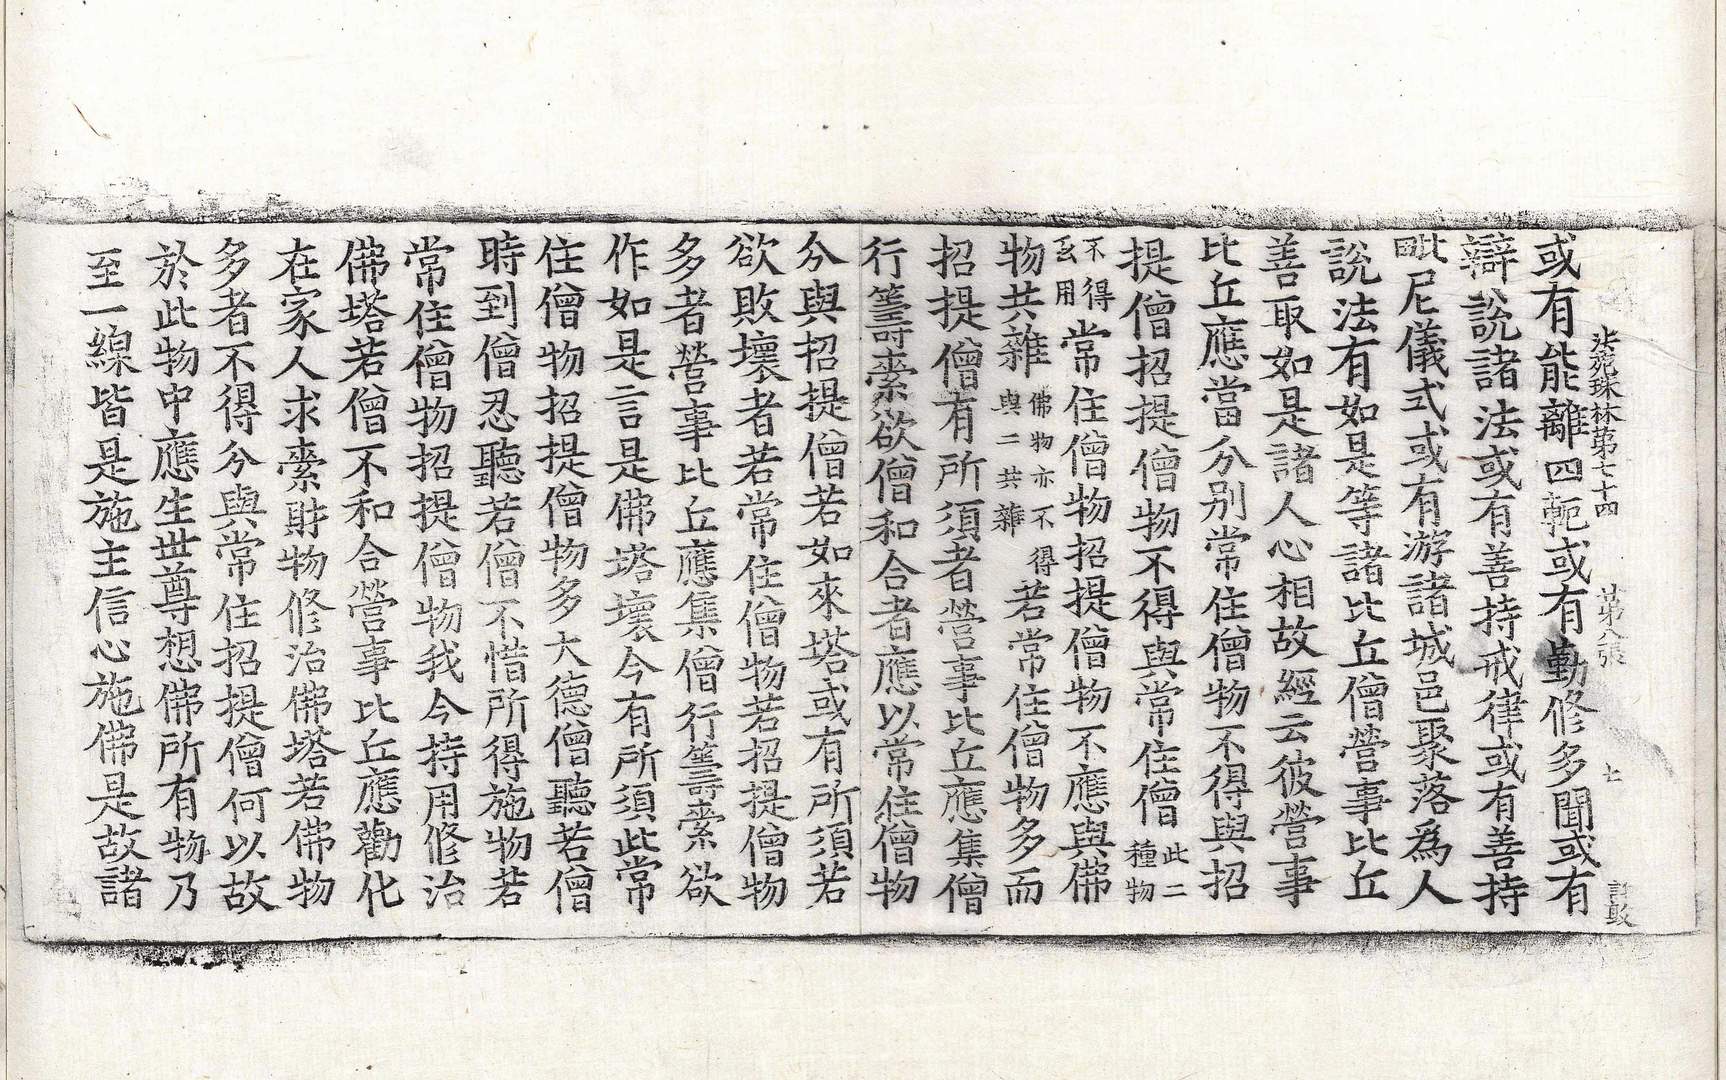 法苑珠林第七十四　第八張　七　許敦
或有能離四軛或有勤修多聞或有
辯說諸法或有善持戒律或有善持
毗尼儀式或有游諸城邑聚落爲人
說法有如是等諸比丘僧營事比丘
善取如是諸人心相故經云彼營事
比丘應當分別常住僧物不得與招
提僧招提僧物不得與常住僧此二種物
不得互用常住僧物招提僧物不應與佛
物共雜佛物亦不得與二共雜若常住僧物多而
招提僧有所須者營事比丘應集僧
行籌索欲僧和合者應以常住僧物
分與招提僧若如來塔或有所須若
欲敗壞者若常住僧物若招提僧物
多者營事比丘應集僧行籌索欲
作如是言是佛塔壞今有所須此常
住僧物招提僧物多大德僧聽若僧
時到僧忍聽若僧不惜所得施物若
常住僧物招提僧物我今持用修治
佛塔若僧不和合營事比丘應勸化
在家人求索財物修治佛塔若佛物
多者不得分與常住招提僧何以故
於此物中應生世尊想佛所有物乃
至一線皆是施主信心施佛是故諸